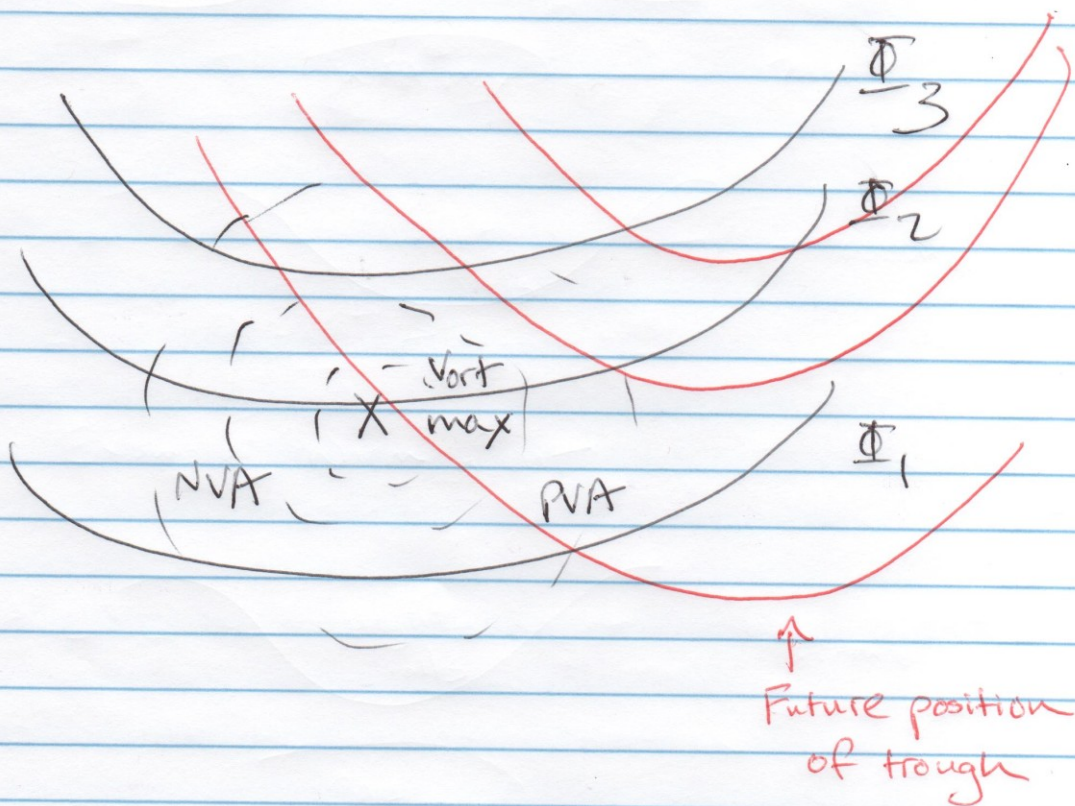 Φ3
Φ2
Vort
X max
Φ1
NVA
PVA
Future position
of trough